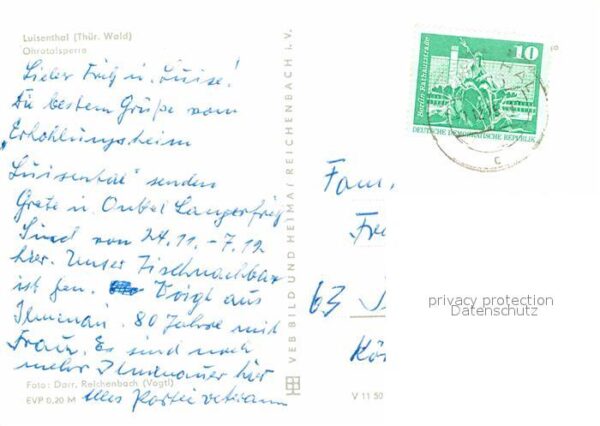 Luisenthal (Thür. Wald)
Ohratalsperre
Lieber Fritz u. Luise!
Die besten Grüße vom
Erhohlungsheim
Luisenthal" senden
Grete u. Onkel Langerfritz
Sind vom 24.11. - 7.12
hier. Unser Tischnachbar
ist Gen. Voigt aus
Ilmenau. 80 Jahre mit
Frau. Es sind noch
mehr Ilmenauer hier
Alles Parteiveteranen
Foto: Darr, Reichenbach (Vogtl)
EVP 0,20 M
VEB BILD UND HEIMAT REICHENBACH i.V.
V 11 50
Berlin, Rathausstraße
10
DEUTSCHE DEMOKRATISCHE REPUBLIK
c
Fam.
Fre
63
Kö
privacy protection
Datenschutz